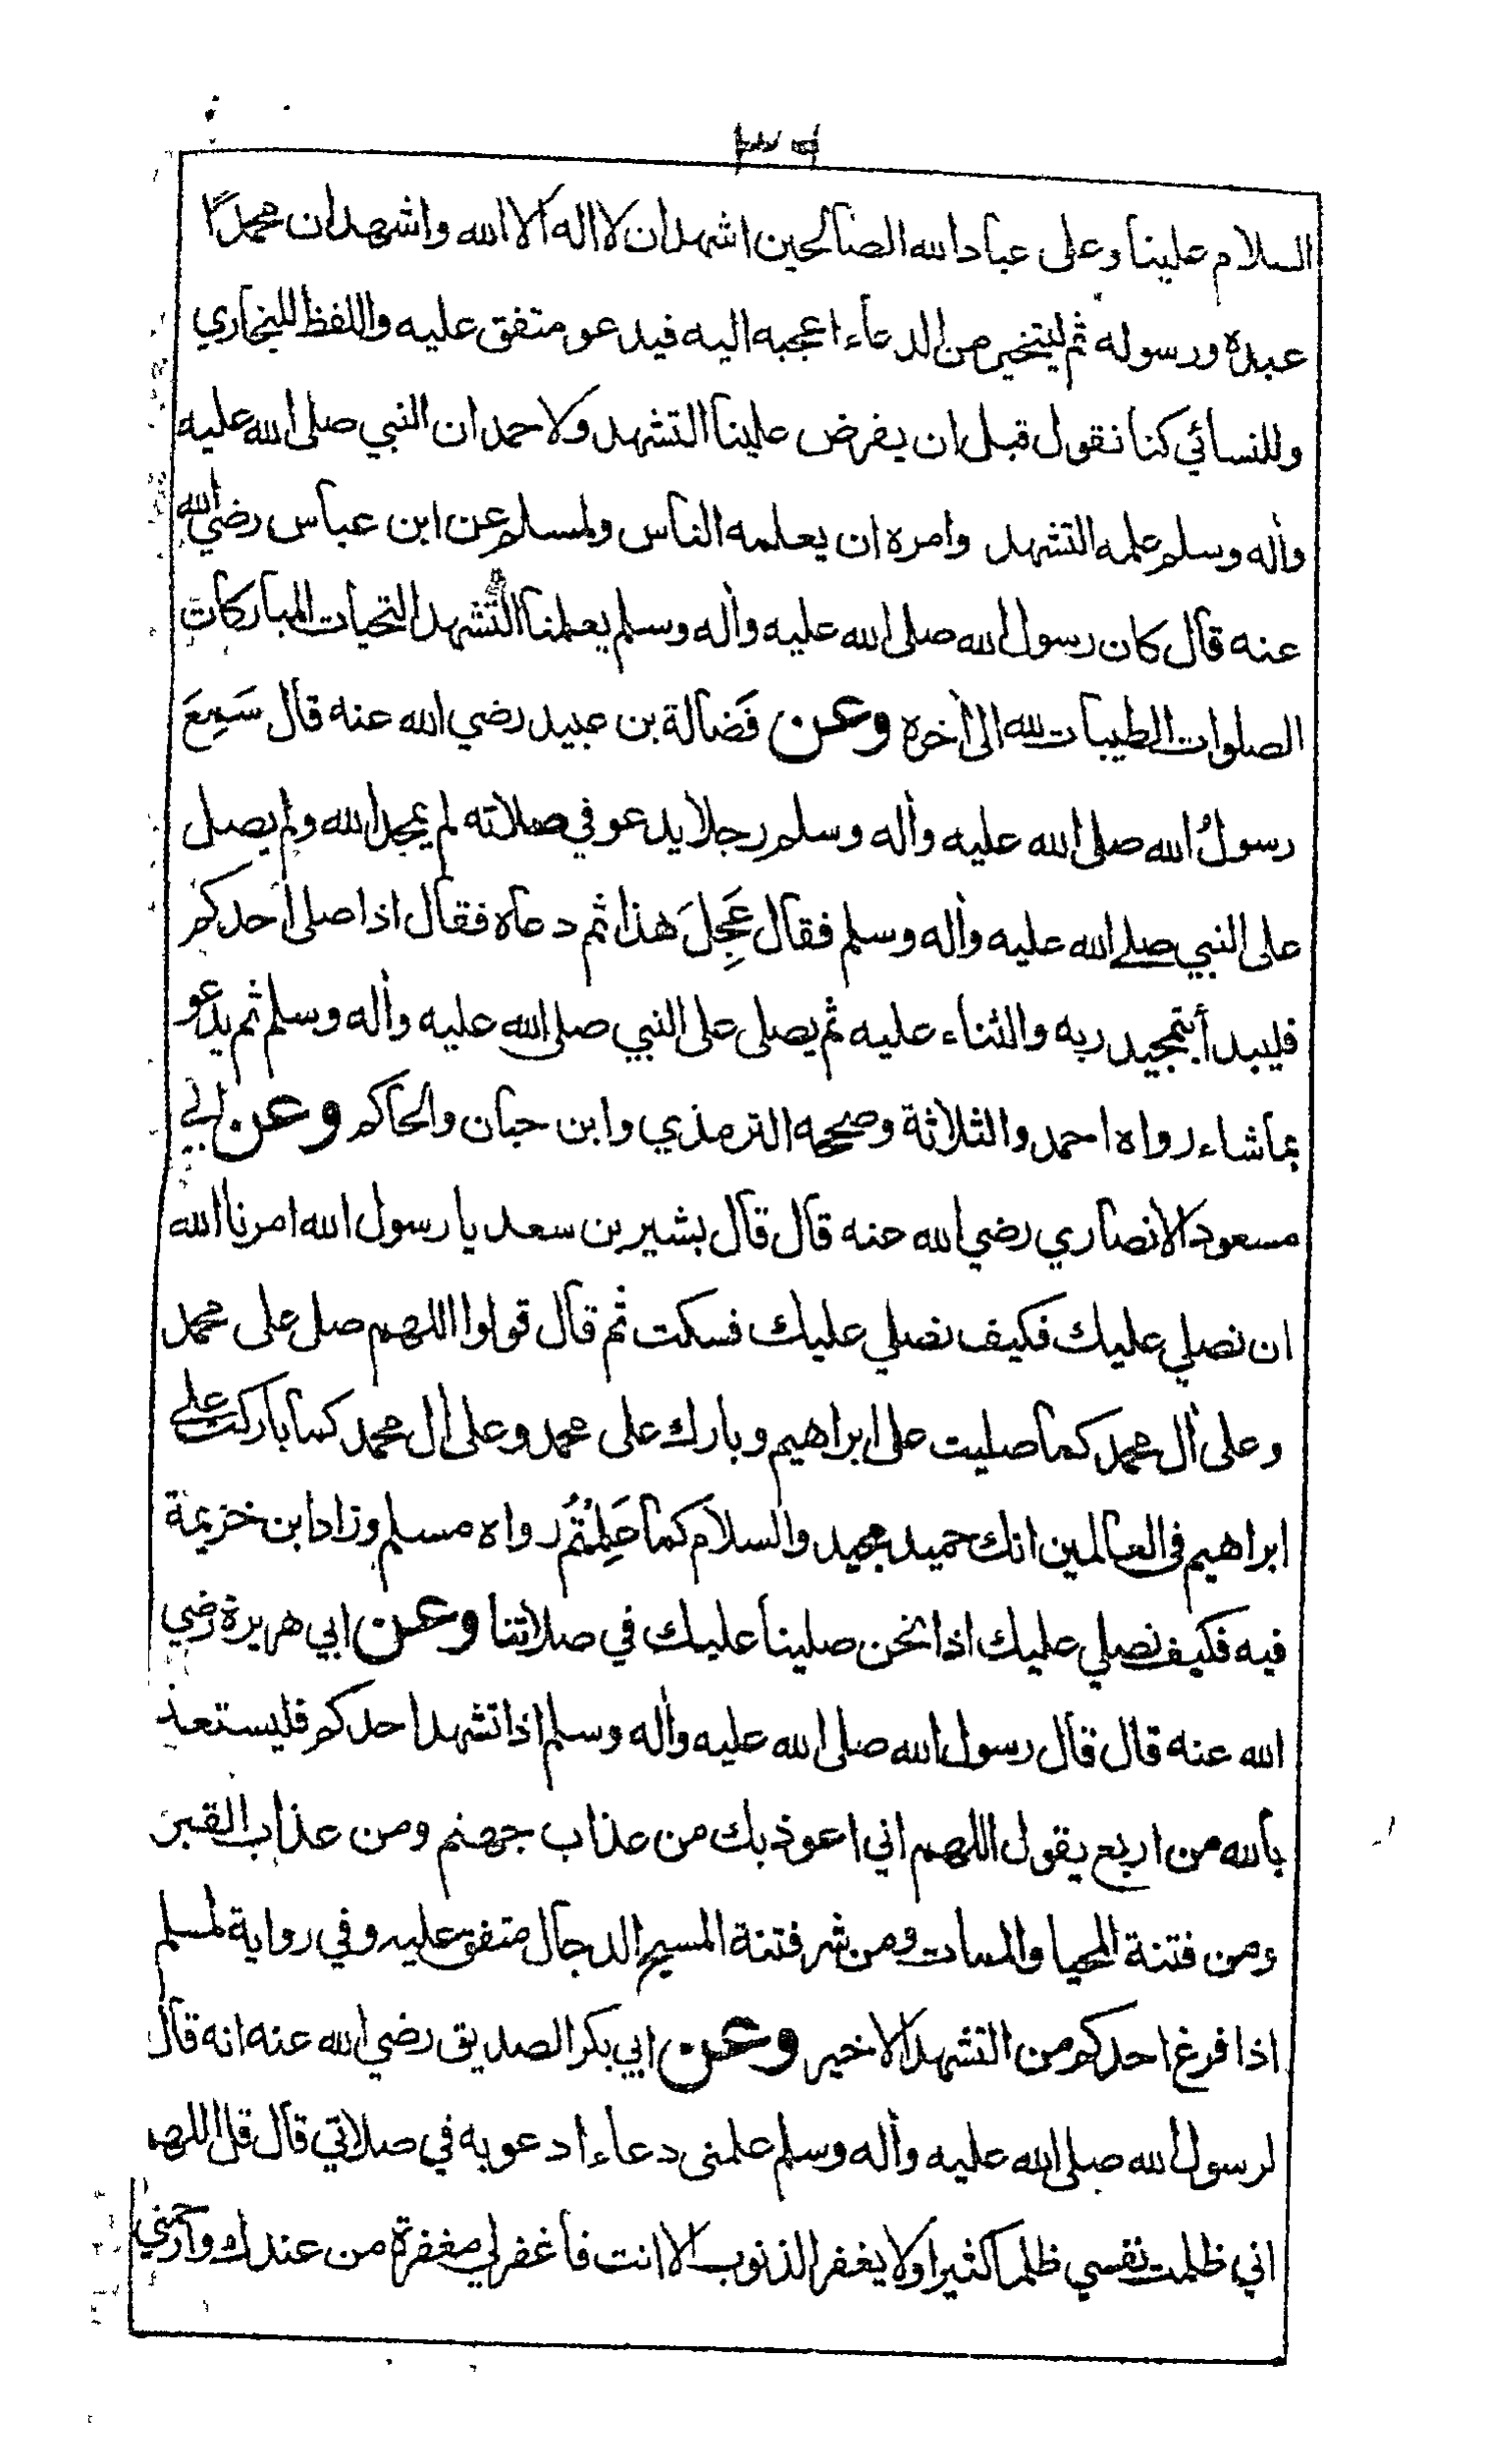 ٣٩
السلام علينا وعلى عباد الله الصالحين اشهد ان لا اله الا الله واشهد ان محمدًا
عبده ورسوله ثم ليتخير من الدعاء اعجبه اليه فيدعو متفق عليه واللفظ للبخاري
وللنسائي كنا نقول قبل ان يفرض علينا التشهد ولاحمد ان النبي صلى الله عليه
وأله وسلم علمه التشهد وامره ان يعلمه الناس ولمسلم عن ابن عباس رضي الله
عنه قال كان رسول الله صلى الله عليه وأله وسلم يعلمنا التشهد التحيات المباركات
الصلوات الطيبات لله الى أخره وعن فَضالة بن عبيد رضي الله عنه قال سَمِعَ
رسولُ الله صلى الله عليه وأله وسلم رجلا يدعو في صلاته لم يمجد الله ولم يصل
على النبي صلى الله عليه وأله وسلم فقال عَجِلَ هذا ثم دعاه فقال اذا صلى أحدكم
فليبدأ بتمجيد ربه والثناء عليه ثم يصلى على النبي صلى الله عليه وأله وسلم ثم يدعو
بماشاء رواه احمد والثلاثة وصححه الترمذي وابن حبان والحاكم وعن ابي
مسعود الانصاري رضي الله عنه قال قال بشير بن سعد يا رسول الله امرنا الله
ان نصلي عليك فكيف نصلي عليك فسكت ثم قال قولوا اللهم صل على محمد
وعلى أل محمد كما صليت على ابراهيم وبارك على محمد وعلى أل محمد كما باركت على
ابراهيم في العالمين انك حميد مجيد والسلام كما عَلِمْتُم رواه مسلم وزاد ابن خزيمة
فيه فكيف نصلي عليك اذا نحن صلينا عليك في صلاتنا وعن ابي هريرة رضي
الله عنه قال قال رسول الله صلى الله عليه وأله وسلم اذا تشهد احدكم فليستعذ
بالله من اربع يقول اللهم اني اعوذ بك من عذاب جهنم ومن عذاب القبر
ومن فتنة المحيا والممات ومن شر فتنة المسيح الدجال متفق عليه وفي رواية لمسلم
اذا فرغ احدكم من التشهد الاخير وعن ابي بكر الصديق رضي الله عنه انه قال
لرسول الله صلى الله عليه وأله وسلم علمنى دعاء ادعو به في صلاتي قال قل اللهم
اني ظلمت نفسي ظلما كثيرا ولا يغفر الذنوب الا انت فاغفر لي مغفرة من عندك وارحمني